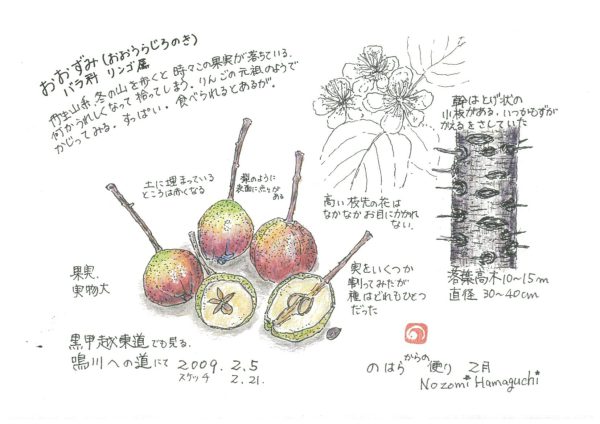 おおずみ(おおうらじろのき)
バラ科 リンゴ属
生駒山系、冬の山を歩くと 時々この果実が落ちている。
何かうれしくなって拾ってしまう。りんごの元祖のようで
かじってみる。すっぱい。食べられるとあるが。
幹はとげ状の
小枝がある。いつかもずが
かえるをさしていた
土に埋まっている
ところは赤くなる
梨のように
表面に点々が
ある
高い枝先の花は
なかなかお目にかかれ
ない。
果実
実物大
実をいくつか
割ってみたが
種はどれもひとつ
だった
落葉高木10~15m
直径 30~40cm
黒甲越東道でも見る。
鳴川への道にて 2009. 2. 5
スケッチ 2. 21.
のはらからの便り 2月
Nozomi Hamaguchi